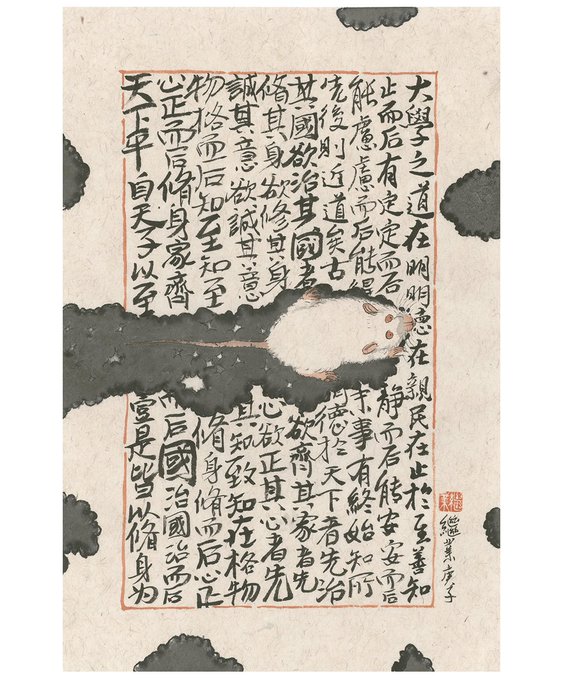 大學之道在明明德在親民在止於至善知
止而后有定定而后靜而后能安安而后
能慮慮而后能得末事有終始知所
先後則近道矣古明德於天下者先治
其國欲治其國者欲齊其家者先
脩其身欲修其身心欲正其心者先
誠其意欲誠其意其知致知在格物
物格而后知至知至脩身脩而后心正
心正而后脩身家齊而后國治國治而后
天下平自天子以至壹是皆以脩身為
繼業庚子